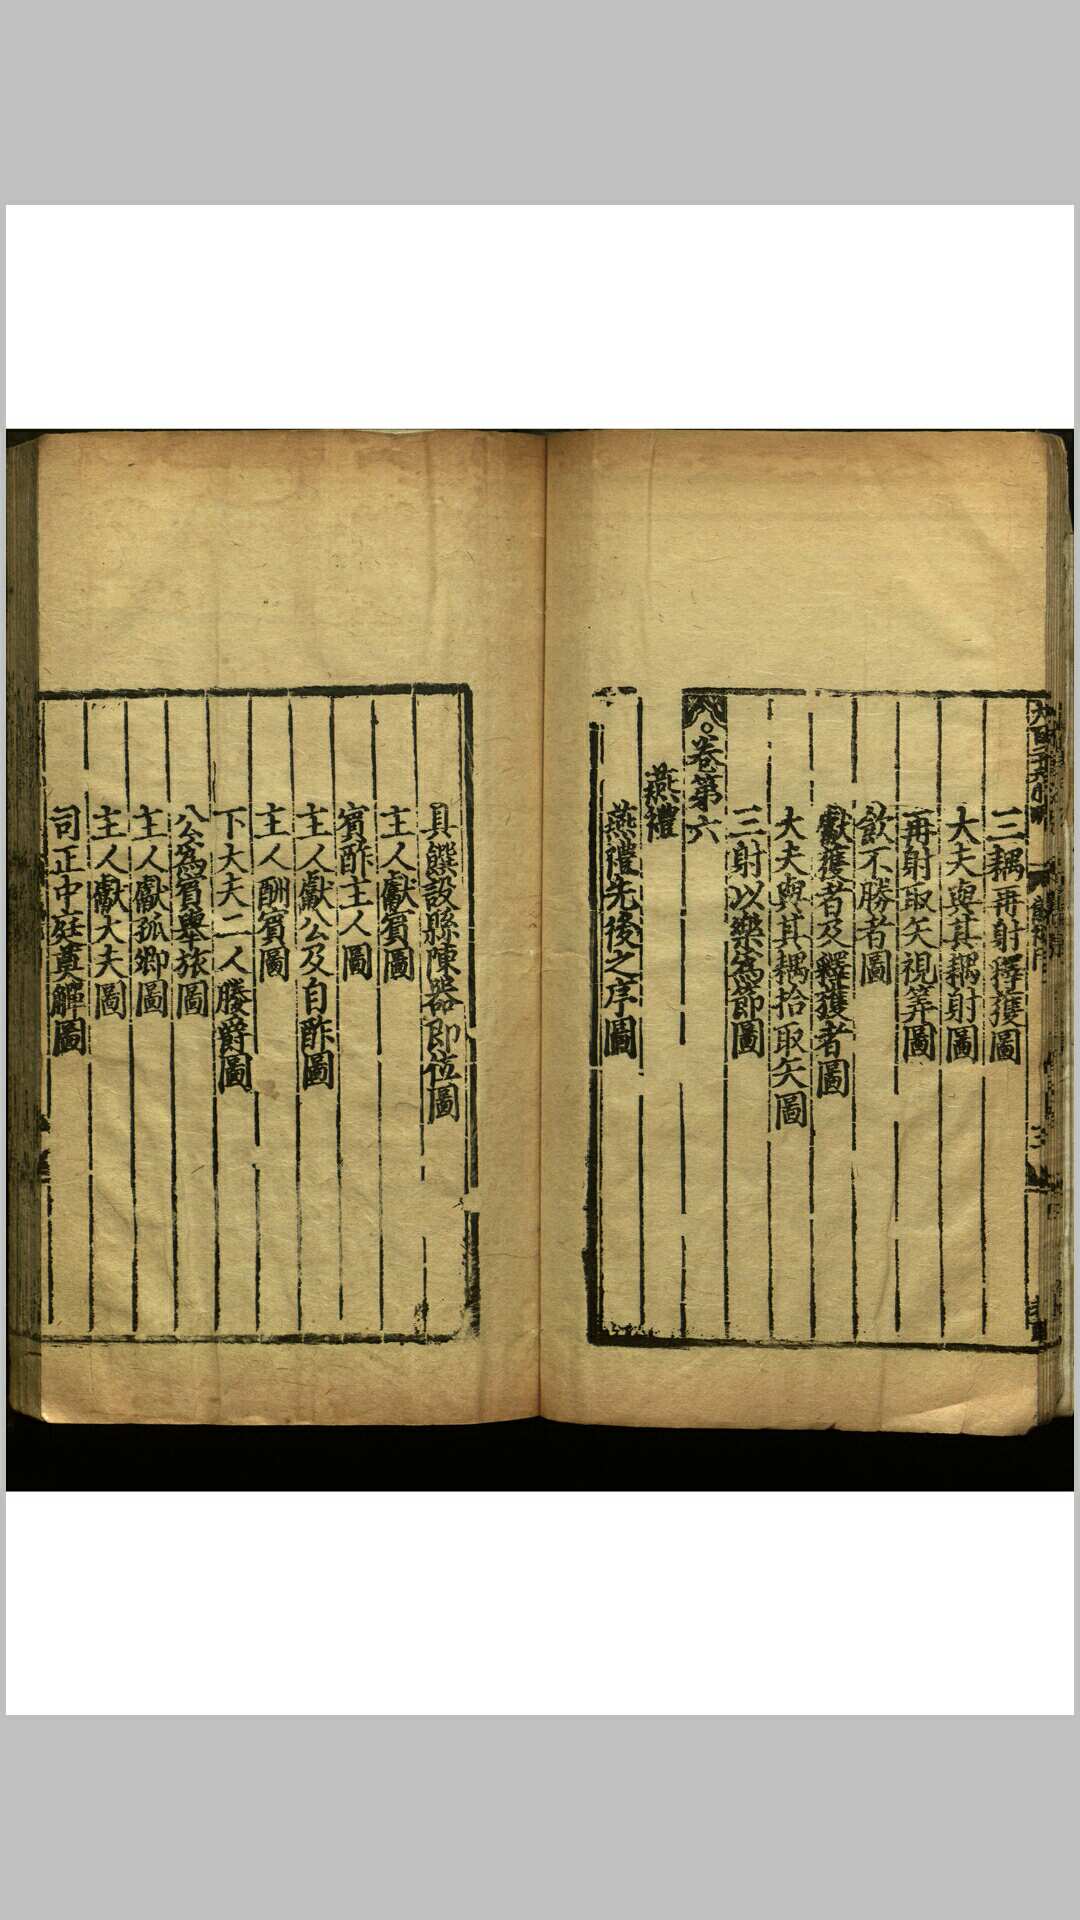 三耦再射釋獲圖
大夫與其耦射圖
再射取矢視筭圖
飲不勝者圖
獻獲者及釋獲者圖
大夫與其耦拾取矢圖
三射以樂爲節圖
卷第六
燕禮
燕禮先後之序圖
具饌設縣陳器即位圖
主人獻賓圖
賓酢主人圖
主人獻公及自酢圖
主人酬賓圖
下大夫二人媵爵圖
公爲賓舉旅圖
主人獻孤卿圖
主人獻大夫圖
司正中庭奠觶圖